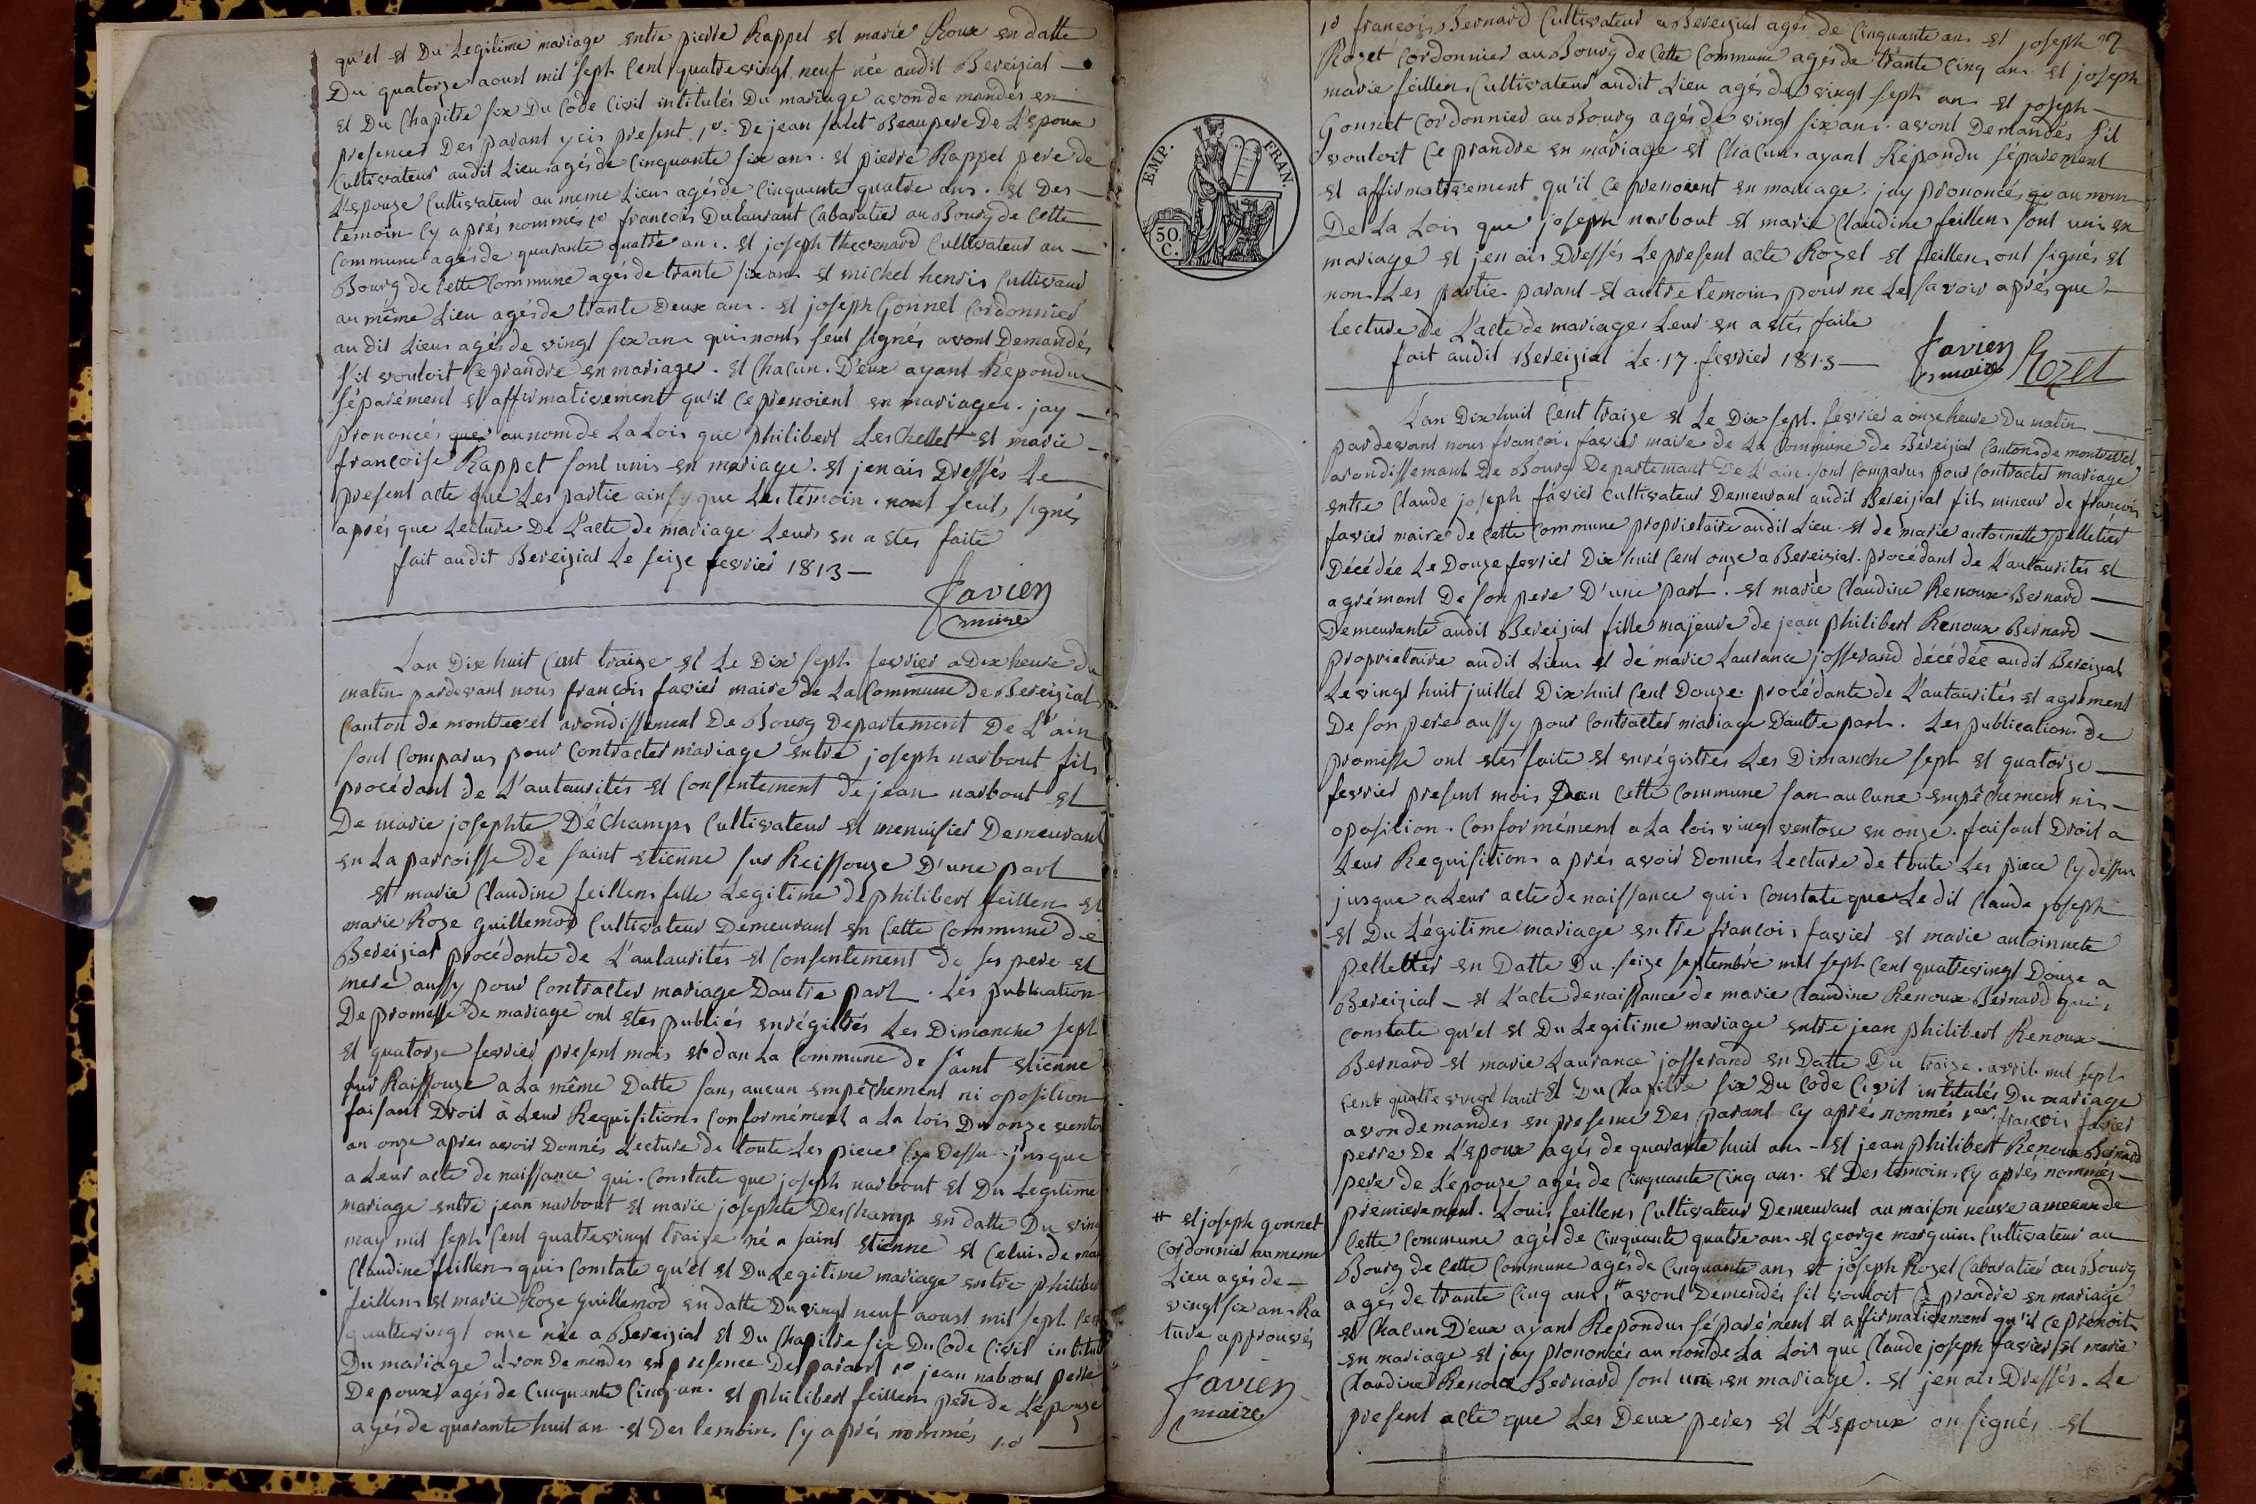 qu'el est Du Legitime mariage entre pierre Rappet et marie Roux en datte
Du quatorze aoust mil sept Cent quatrevingt neuf née audit Bereiziat —
et Du Chapitre six Du Code Civil intitulés Du mariage avon de mandés en
presences Des parant y cis present 1er. De jean Beaupere De L'epoux
Cultivateur audit Lieu agés de Cinquante six ans. et pierre Rappet pere de
L'epouze Cultivateur au meme Lieu agés de Cinquante quatre ans. et Des —
temoin Cy aprés nommés 1er francois Dulaurant Cabaratier au Bourg de Cette
Commune agés de quarante quatre an. et joseph thevenard Cultivateur au —
Bourg de Cette Commune agés de trante six ans et michel henris Cultivateur
au même Lieu agés de trante Deux ans. et joseph Gonnet Cordonnier
audit Lieu agés de vingt six ans qui nont seul signés avont Demandés
s'il vouloit Ce prandre en mariage. et Chacun. D'eux ayant Repondu
séparément et affirmativement qu'il Ce prenoient en mariage. jay —
prononcés que au nom de La Lois que philibert LesChellet et marie —
françoise Rappet sont unis en mariage. et jen ais Dressés Le
present acte que Les partie ainsy que Les témoin. nont seul signés
aprés que Lecture De L'acte de mariage Leurs en a etés faite
fait audit Bereiziat Le seize fevrier 1813 —
favier
maire
Lan Dix huit Cent traize et Le Dix sept fevrier a Dix heure du
matin pardevant nous francois favier maire de La Commune de Bereiziat
Canton de montrevel arondissement De Bourg Departement De L'ain
sont Comparus pour Contracter mariage entre joseph narbout fils
procédant de L'autaurités et Consentement de jean narbout et
De marie josephte DéChamps Cultivateur et menuisier Demeurant
en La parroisse de saint etienne sur Reissouze D'une part
et marie Claudine feillens fille Legitime de philibert feillens et
marie Roze Guillemod Cultivateur Demeurant en Cette Commune de
Bereiziat procédante de L'autaurités et Consentement de ses pere et
mere aussy pour Contracter mariage Dautre part. Les publication
De promesse de mariage ont etes publiés enrégistrés Les Dimanche sept
et quatorze fevrier present mois et dan La Commune de saint etienne
sur Raissouze a La même Datte sans aucun empêchement ni oposition
faisant Droit à Leur Requisitions Conformément a La lois Du onze vento
an onze apres avoir Donnés Lecture de toute Les piece Cy Dessu jusque
a Leur acte de naissance qui. Constate que joseph narbout et Du Legitime
mariage entre jean narbout et marie josephte DesChamp en datte Du ving
may mil seph Cent quatrevingt traize né a saint etienne et Celui de mar
Claudine feillens qui Constate qu'el et Du Legitime mariage entre philiber
feillens et marie Roze Guillemod en datte Du vingt neuf aoust mil sept Cen
quatrevingt onze née a Bereiziat et Du Chapitre six Du Code Civil intitul
Du mariage avon de mandes en presence Des parant 1er jean nabout perre
De poux agés de Cinquante Cinq an. et philibert feillens pere de L'épouze
agés de quarante huit an. et Des temoins Cy aprés nommés 1er —
1er françois Bernard Cultivateur a Bereiziat agés de Cinquante an et joseph
Rozet Cordonnier au Bourg de Cette Commune agés de trante Cinq ans et joseph
marie feillens Cultivateur audit Lieu agés de vingt seph ans et joseph —
Gonnet Cordonnier au Bourg agés de vingt six ans. avont Demandés s'il
vouloit Ce prandre en mariage et Chacuns ayant Répondu séparement
et affirmativement qu'il Ce prenoient en mariage. jay prononcés au nom
De La Lois que joseph narbout et marie Claudine feillens sont unis en
mariage et jen ais Dressés Le present acte Rozet et feillens ont signés et
non Les partie parant et autre temoins pour ne Le savoir aprés que —
Lecture de L'acte de mariage Leur en a etés faite
fait audit Bereiziat Le 17 fevrier 1813 —
favier
maire
Rozet
EMP. FRAN.
50
C.
Lan Dix huit Cent traize et Le Dix sept. fevrier a onze heure Du matin —
pardevant nous francois favier maire de La Commune de Bereiziat Canton de montrevel,
arondissemant De Bourg Departemant De L'ain. sont Comparus pour Contracter mariage
entre Claude joseph favier Cultivateur Demeurant audit Bereiziat fils mineur de francois
favier maire de Cette Commune proprietaire audit Lieu. et de marie antoinette pelletier
Décédée Le Douze fevrier Dix huit Cent onze a Bereiziat. procédant de L'autaurités et
agrémant De son pere D'une part. et marie Claudine Renoux Bernard —
Demeurante audit Bereiziat fille majeure de jean philibert Renoux Bernard —
proprietaire audit Lieu et de marie Laurance josserand décédée audit Bereiziat
Le vingt huit juillet Dix huit Cent Douze. procédante de L'autaurités et agrement
De son pere aussy pour Contracter mariage D'autre part. Les publications de
promesse ont etes faite et enrégistres Les Dimanche sept et quatorze —
fevrier present mois Dan Cette Commune san aucune empêchement ni —
oposition. Conformément a La lois vingt ventose en onze. faisant Droit a
Leur Requisitions a prés avoir Donnés Lecture de toute Les piece Cy dessus
jusque a Leur acte de naissance qui Constate que Le dit Claude joseph
et Du Légitime mariage entre francois favier et marie antoinnete
pelletier en Datte Du. seize septembre mil sept Cent quatrevingt Douze a
Bereiziat — et L'acte denaissance de marie Claudine Renoux Bernard qui
Constate qu'el et Du Legitime mariage entre jean philibert Renoux —
Bernard et marie Laurance josserand en Datte Du traize. avril mil sept
Cent quatre vingt huit et Du Chapitre six Du Code Civil intitulés Du mariage
avon demandes en presence Des parant Cy aprés nommés 1er francois favier
perre De L'epoux agés de quarante huit ans — et jean philibert Renoux Bernard
pere de L'epouze agés de Cinquante Cinq ans. et Des temoins Cy aprés nommés —
premierement. Louis feillens Cultivateur Demeurant au maison neuve de
Cette Commune agés de Cinquante quatre ans et george marguin Cultivateur au
Bourg de Cette Commune agés de Cinquante ans et joseph Rozet Cabaratier au Bourg
agés de trante Cinq ans, # avont Demendés sil vouloit Ce prandre en mariage
et Chacun D'eux ayant Repondu séparément et affirmativement qu'il Ce prenoit
en mariage et jay prononcés au nom de La Lois que Claude joseph favier et marie
Claudine Renoux Bernard sont unis en mariage. et jen ais Dressés Le
present acte que Les Deux peres et L'epoux on signés et
# et joseph gonnet
Cordonnier au meme
Lieu agés de —
vingt six ans Ra
ture approuvés
favier
maire